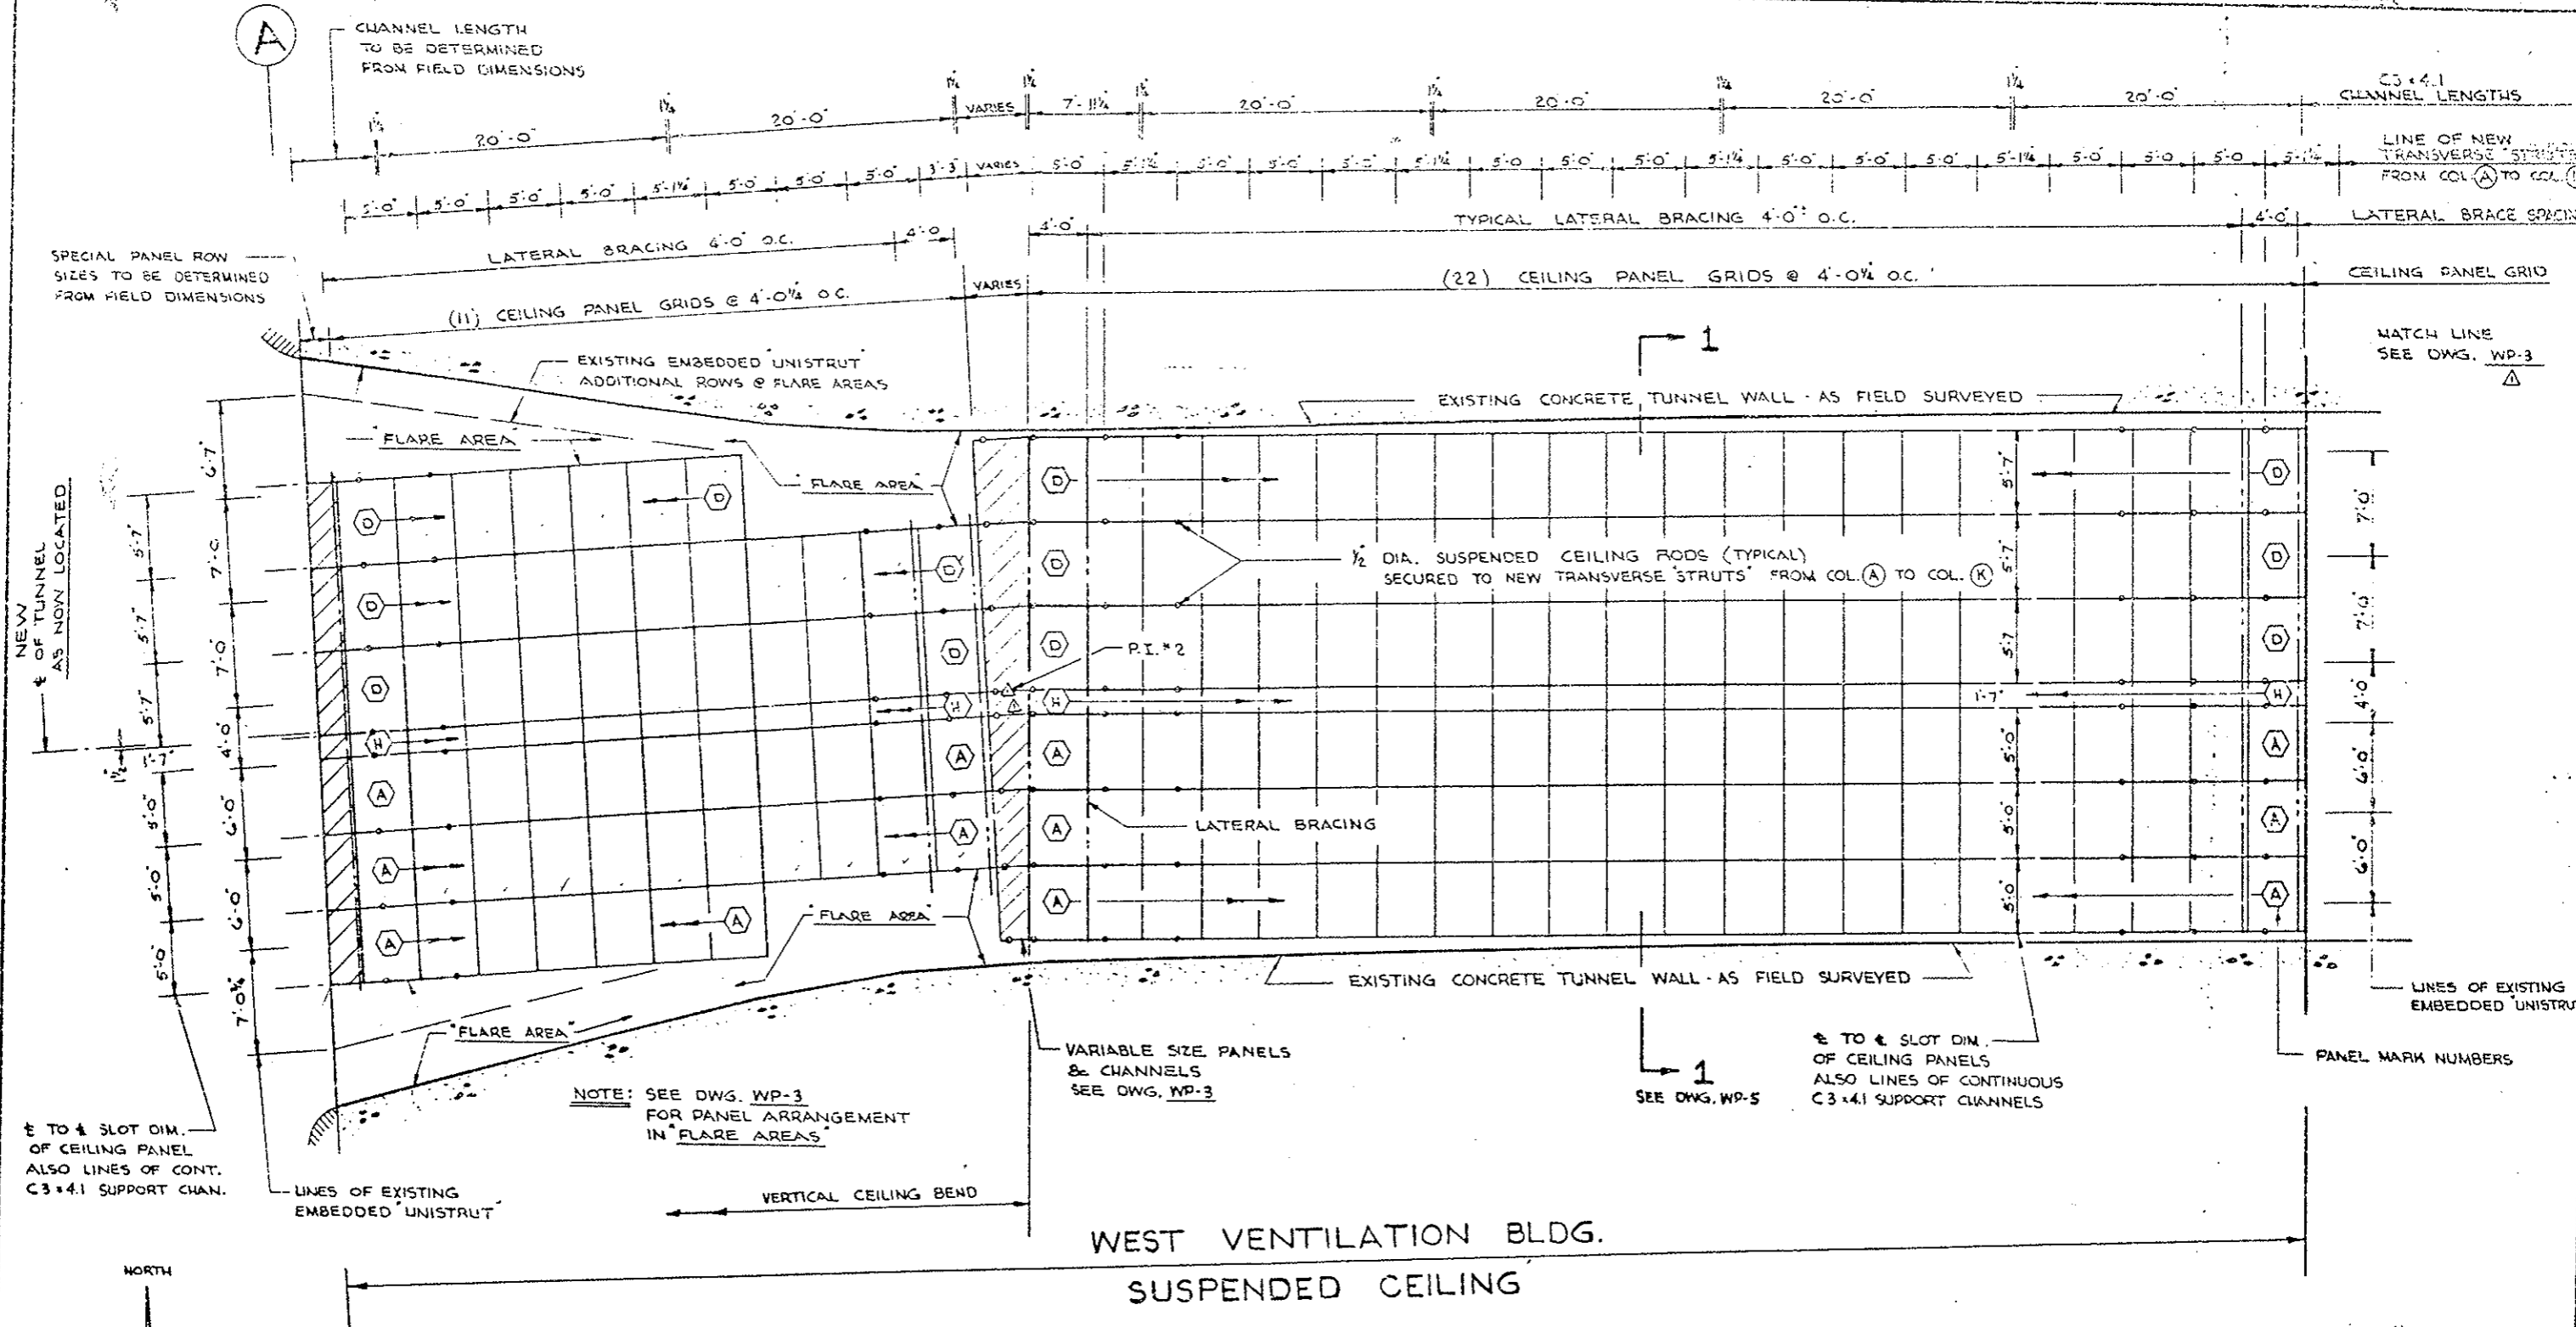 A
CHANNEL LENGTH
TO BE DETERMINED
FROM FIELD DIMENSIONS
1¼" 20'-0" 1¼" 20'-0" 1¼" VARIES 1¼" 7'-11¼" 1¼" 20'-0" 1¼" 20'-0" 1¼" 20'-0" 1¼" 20'-0"
C3×4.1
CHANNEL LENGTHS
5'-0" 5'-0" 5'-0" 5'-0" 5'-1¼" 5'-0" 5'-0" 5'-0" 3'-3" VARIES 5'-0" 5'-1¼" 5'-0" 5'-0" 5'-0" 5'-1¼" 5'-0 5'-0" 5'-0" 5'-1¼" 5'-0" 5'-0" 5'-0" 5'-1¼" 5'-0" 5'-0 5'-0 5'-1¼"
LINE OF NEW
TRANSVERSE
FROM COL. A TO COL.
LATERAL BRACING 4'-0" O.C. 4'-0
4'-0" TYPICAL LATERAL BRACING 4'-0" O.C. 4'-0"
LATERAL BRACE
SPECIAL PANEL ROW
SIZES TO BE DETERMINED
FROM FIELD DIMENSIONS
(11) CEILING PANEL GRIDS @ 4'-0¼" O.C. VARIES (22) CEILING PANEL GRIDS @ 4'-0¼" O.C.
CEILING PANEL GRID
MATCH LINE
SEE DWG. WP-3
1
EXISTING EMBEDDED "UNISTRUT"
ADDITIONAL ROWS @ FLARE AREAS
1
EXISTING CONCRETE TUNNEL WALL - AS FIELD SURVEYED
"FLARE AREA"
"FLARE AREA"
NEW
℄ OF TUNNEL
AS NOW LOCATED
5'-7" 5'-7" 5'-7" 1'-7" 1½" 5'-0" 5'-0" 5'-0"
6'-7" 7'-0" 7'-0" 4'-0" 6'-0" 6'-0" 7'-0¾"
D D D H A A A
D A
D D H A A
D D D H A A A
½" DIA. SUSPENDED CEILING RODS (TYPICAL)
SECURED TO NEW TRANSVERSE "STRUTS" FROM COL. A TO COL. K
P.I. #2
1
LATERAL BRACING
5'-7" 5'-7" 5'-7 1'-7" 5'-0" 5'-0" 5'-0"
D D D H A A A
7'-0" 7'-0" 4'-0" 6'-0" 6'-0"
"FLARE AREA"
EXISTING CONCRETE TUNNEL WALL - AS FIELD SURVEYED
LINES OF EXISTING
EMBEDDED
"FLARE AREA"
VARIABLE SIZE PANELS
& CHANNELS
SEE DWG. WP-3
1
SEE DWG. WP-5
℄ TO ℄ SLOT DIM.
OF CEILING PANELS
ALSO LINES OF CONTINUOUS
C3×4.1 SUPPORT CHANNELS
PANEL MARK NUMBERS
NOTE: SEE DWG. WP-3
FOR PANEL ARRANGEMENT
IN "FLARE AREAS"
℄ TO ℄ SLOT DIM.
OF CEILING PANEL
ALSO LINES OF CONT.
C3×4.1 SUPPORT CHAN.
LINES OF EXISTING
EMBEDDED "UNISTRUT"
VERTICAL CEILING BEND
WEST VENTILATION BLDG.
SUSPENDED CEILING
NORTH